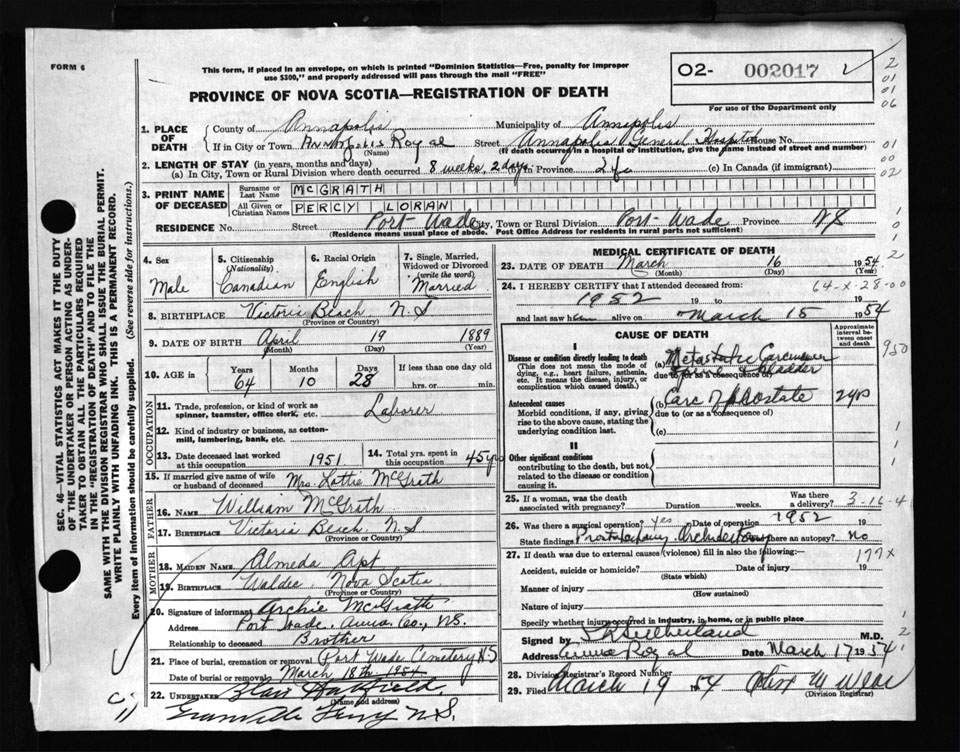 FORM 6
This form, if placed in an envelope, on which is printed "Dominion Statistics—Free, penalty for improper
use $300," and properly addressed will pass through the mail "FREE"
O2- 002017
For use of the Department only
PROVINCE OF NOVA SCOTIA—REGISTRATION OF DEATH
2
01
01
06
01
00
02
1. PLACE OF DEATH
County of Annapolis Municipality of Annapolis
If in City or Town Annapolis Royal Street Annapolis General Hospital House No.
(Name) (If death occurred in a hospital or institution, give the name instead of street and number)
2. LENGTH OF STAY (in years, months and days)
(a) In City, Town or Rural Division where death occurred 8 weeks, 2 days (b) In Province (c) In Canada (if immigrant)
3. PRINT NAME OF DECEASED
Surname or Last Name McGRATH
All Given or Christian Names PERCY LORAN
RESIDENCE No. Street Port Wade City, Town or Rural Division Port Wade Province NS
(Residence means usual place of abode. Post Office Address for residents in rural parts not sufficient)
4. Sex
Male
5. Citizenship (Nationality)
Canadian
6. Racial Origin
English
7. Single, Married, Widowed or Divorced (write the word)
Married
8. BIRTHPLACE Victoria Beach N.S
(Province or Country)
9. DATE OF BIRTH April 19 1889
(Month) (Day) (Year)
10. AGE in Years Months Days If less than one day old
64 10 28 hrs. or min.
OCCUPATION
11. Trade, profession, or kind of work as spinner, teamster, office clerk, etc. Laborer
12. Kind of industry or business, as cotton-mill, lumbering, bank, etc.
13. Date deceased last worked at this occupation 1951
14. Total yrs. spent in this occupation 45 yrs
15. If married give name of wife or husband of deceased Mrs. Lottie McGrath
FATHER
16. NAME William McGrath
17. BIRTHPLACE Victoria Beach N.S
(Province or Country)
MOTHER
18. MAIDEN NAME Almeda Apt
19. BIRTHPLACE Waldec Nova Scotia
(Province or Country)
20. Signature of informant Archie McGrath
Address Port Wade, Anna. Co., N.S.
Relationship to deceased Brother
21. Place of burial, cremation or removal Port Wade Cemetery NS
March 18th 1954
22. UNDERTAKER Blair Hatfield
(Name and address)
Granville Ferry N.S.
MEDICAL CERTIFICATE OF DEATH
23. DATE OF DEATH March 16 1954
(Month) (Day) (Year)
24. I HEREBY CERTIFY that I attended deceased from: 64-X-28-00
1952 19 to 19
and last saw him alive on March 15 1954
CAUSE OF DEATH
Approximate interval between onset and death
I
Disease or condition directly leading to death
(This does not mean the mode of dying, e.g., heart failure, asthenia, etc. It means the disease, injury, or complication which caused death.)
(a) Metastatic Carcinoma
Bladder
due to (or as a consequence of)
Antecedent causes
Morbid conditions, if any, giving rise to the above cause, stating the underlying condition last.
(b) Carc of Prostate 2 yrs
due to (or as a consequence of)
(c)
II
Other significant conditions
contributing to the death, but not related to the disease or condition causing it.
25. If a woman, was the death associated with pregnancy? Duration weeks. Was there a delivery? 3-16-4
26. Was there a surgical operation? Yes Date of operation 1952 19
State findings Prostatectomy. Orchidectomy Was there an autopsy? No
27. If death was due to external causes (violence) fill in also the following:— 177X
Accident, suicide or homicide? Date of injury 19
(State which)
Manner of injury
(How sustained)
Nature of injury
Specify whether injury occurred in industry, in home, or in public place
Signed by Sutherland M.D.
Address Anna Royal Date March 17 1954
28. Division Registrar's Record Number
29. Filed March 19 54
(Division Registrar)
SEC. 46—VITAL STATISTICS ACT MAKES IT THE DUTY
OF THE UNDERTAKER OR PERSON ACTING AS UNDER-
TAKER TO OBTAIN ALL THE PARTICULARS REQUIRED
IN THE "REGISTRATION OF DEATH" AND TO FILE THE
SAME WITH THE DIVISION REGISTRAR WHO SHALL ISSUE THE BURIAL PERMIT.
WRITE PLAINLY WITH UNFADING INK. THIS IS A PERMANENT RECORD.
Every item of information should be carefully supplied. (See reverse side for instructions.)